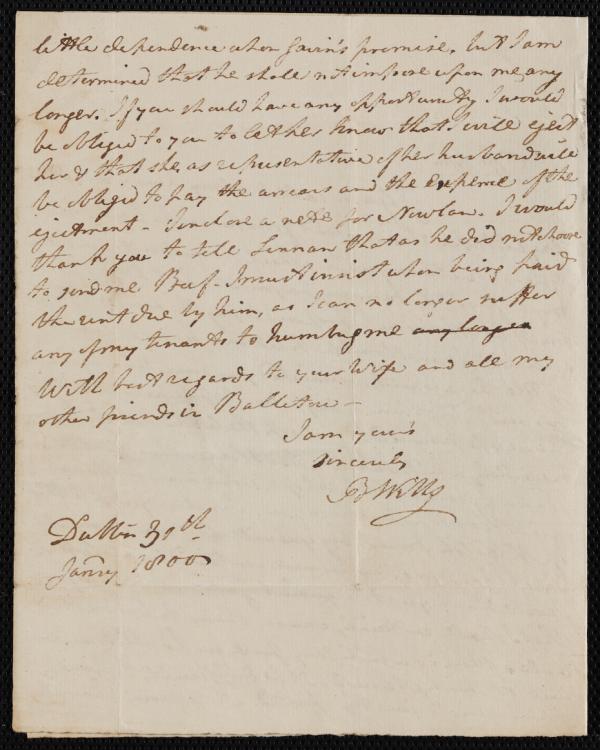 little dependence upon Gavin's promise, but I am
determined that he shall not impose upon me any
longer. If you should have any opportunity I would
be obliged to you to let her know that I will eject
her & that she, as representative of her husband will
be obliged to pay the arrears and the Expence of the
ejectment - I inclose a note for Nowlan. I would
thank you to tell Lennan that as he did not choose
to send me Beef - I must insist upon being paid
the rent due by him, as I can no longer suffer
any of my tenants to humbug me any longer
With best regards to your Wife and all my
other friends in
I am your's
Sincerely
B Wills
Dublin 30th
Janry 1800